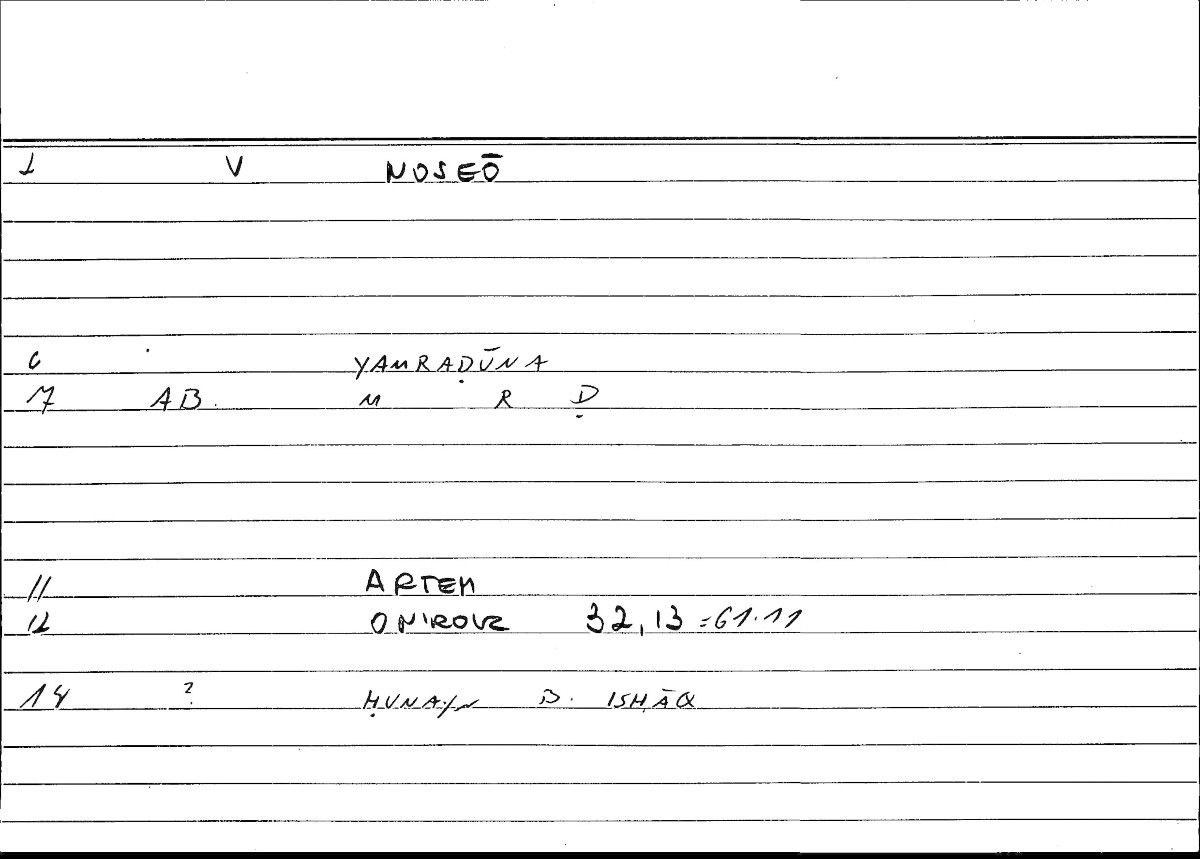 1 V NOSEŌ
6 YAMRAḌŪNA
7 AB. M R Ḍ
11 ARTEM
12 ONIROCR 32,13 = 61.11
18 ? ḤUNAYN B. ISḤĀQ